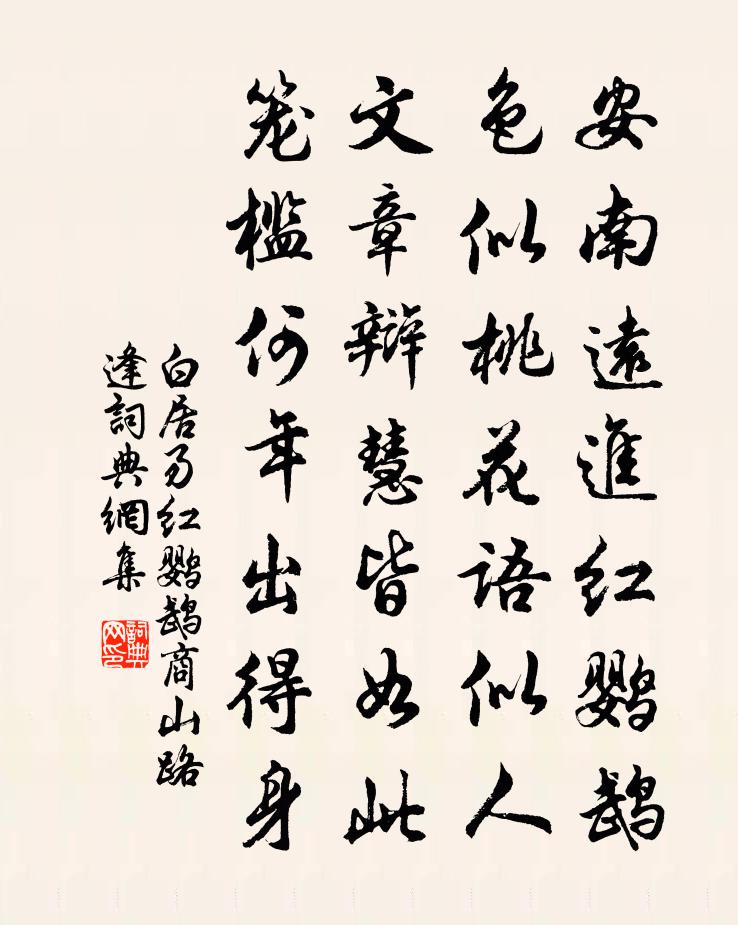 安南遠進红鹦鹉
色似桃花語似人
文章辯慧皆如此
笼檻何年出得身
白居易红鹦鹉商山路
逢詞典網集
詞典网印